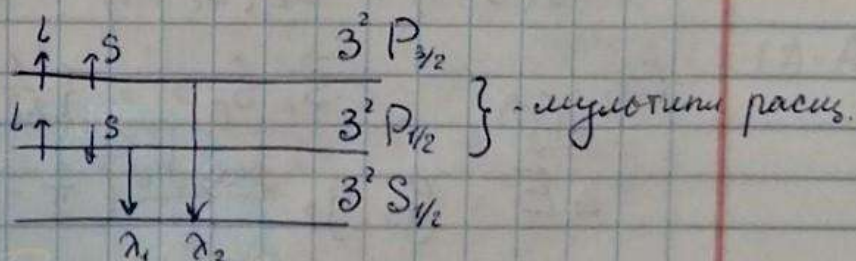 l S 3² P₃/₂
l S 3² P₁/₂ } - мультипл расщ.
3² S₁/₂
λ₁ λ₂